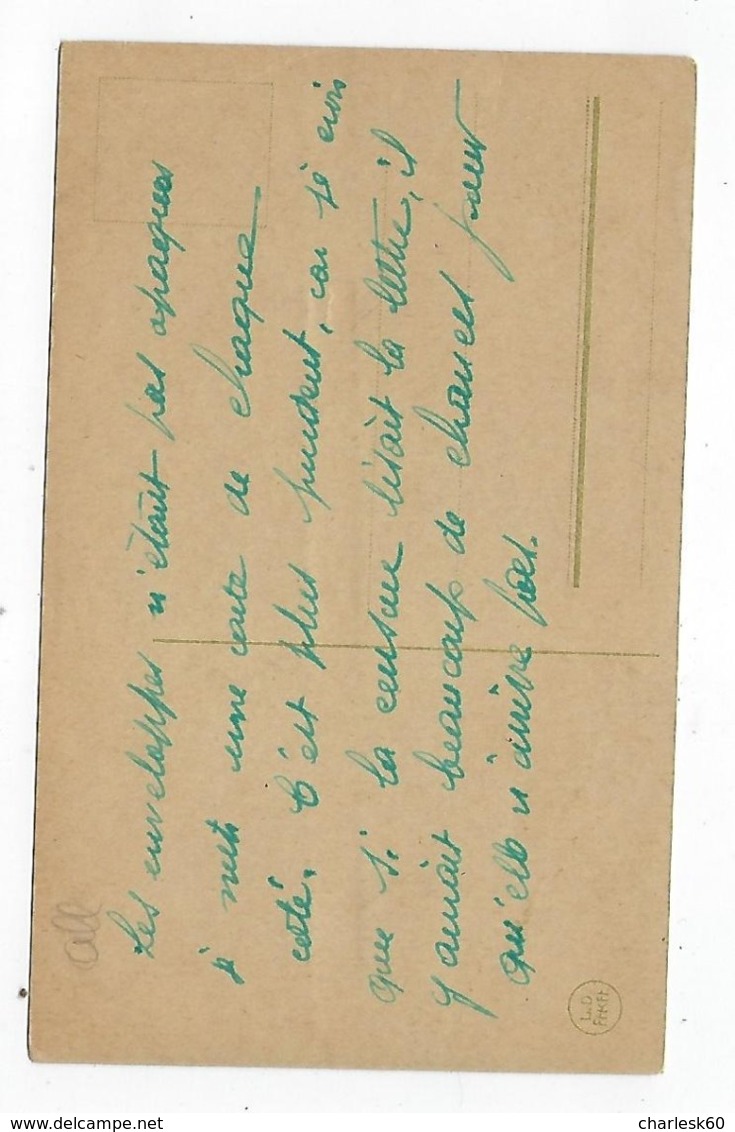 Les enveloppes n'étant pas opaques
je mets une carte de chaque
coté. C'est plus prudent, car je crois
que si la censure lisait la lettre, il
y aurait beaucoup de chances pour
qu'elle n'arrive pas.
all
www.delcampe.net
charlesk60